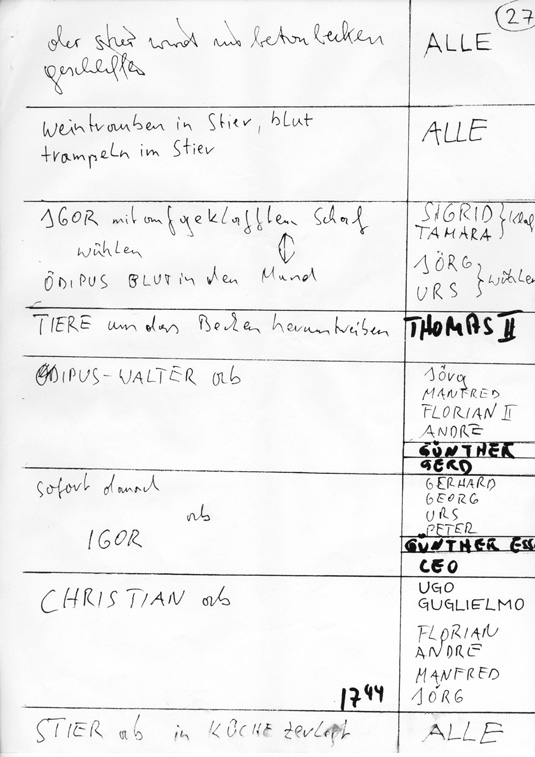 27
der stier wird ins betonbecken ALLE
geschleift
weintrauben in Stier, blut ALLE
trampeln im Stier
IGOR mit aufgeklafftem Schaf SIGRID
wühlen TAMARA
ÖDIPUS BLUT in den Mund JÖRG wühlen
URS
TIERE um das Becken herumtreiben THOMAS II
ÖDIPUS-WALTER ab Jörg
MANFRED
FLORIAN II
ANDRE
GÜNTHER
GERD
sofort danach GERHARD
GEORG
ab URS
PETER
IGOR GÜNTHER ESS
LEO
CHRISTIAN ab UGO
GUGLIELMO
FLORIAN
ANDRE
MANFRED
17 44 JÖRG
STIER ab in KÜCHE zerlegt ALLE